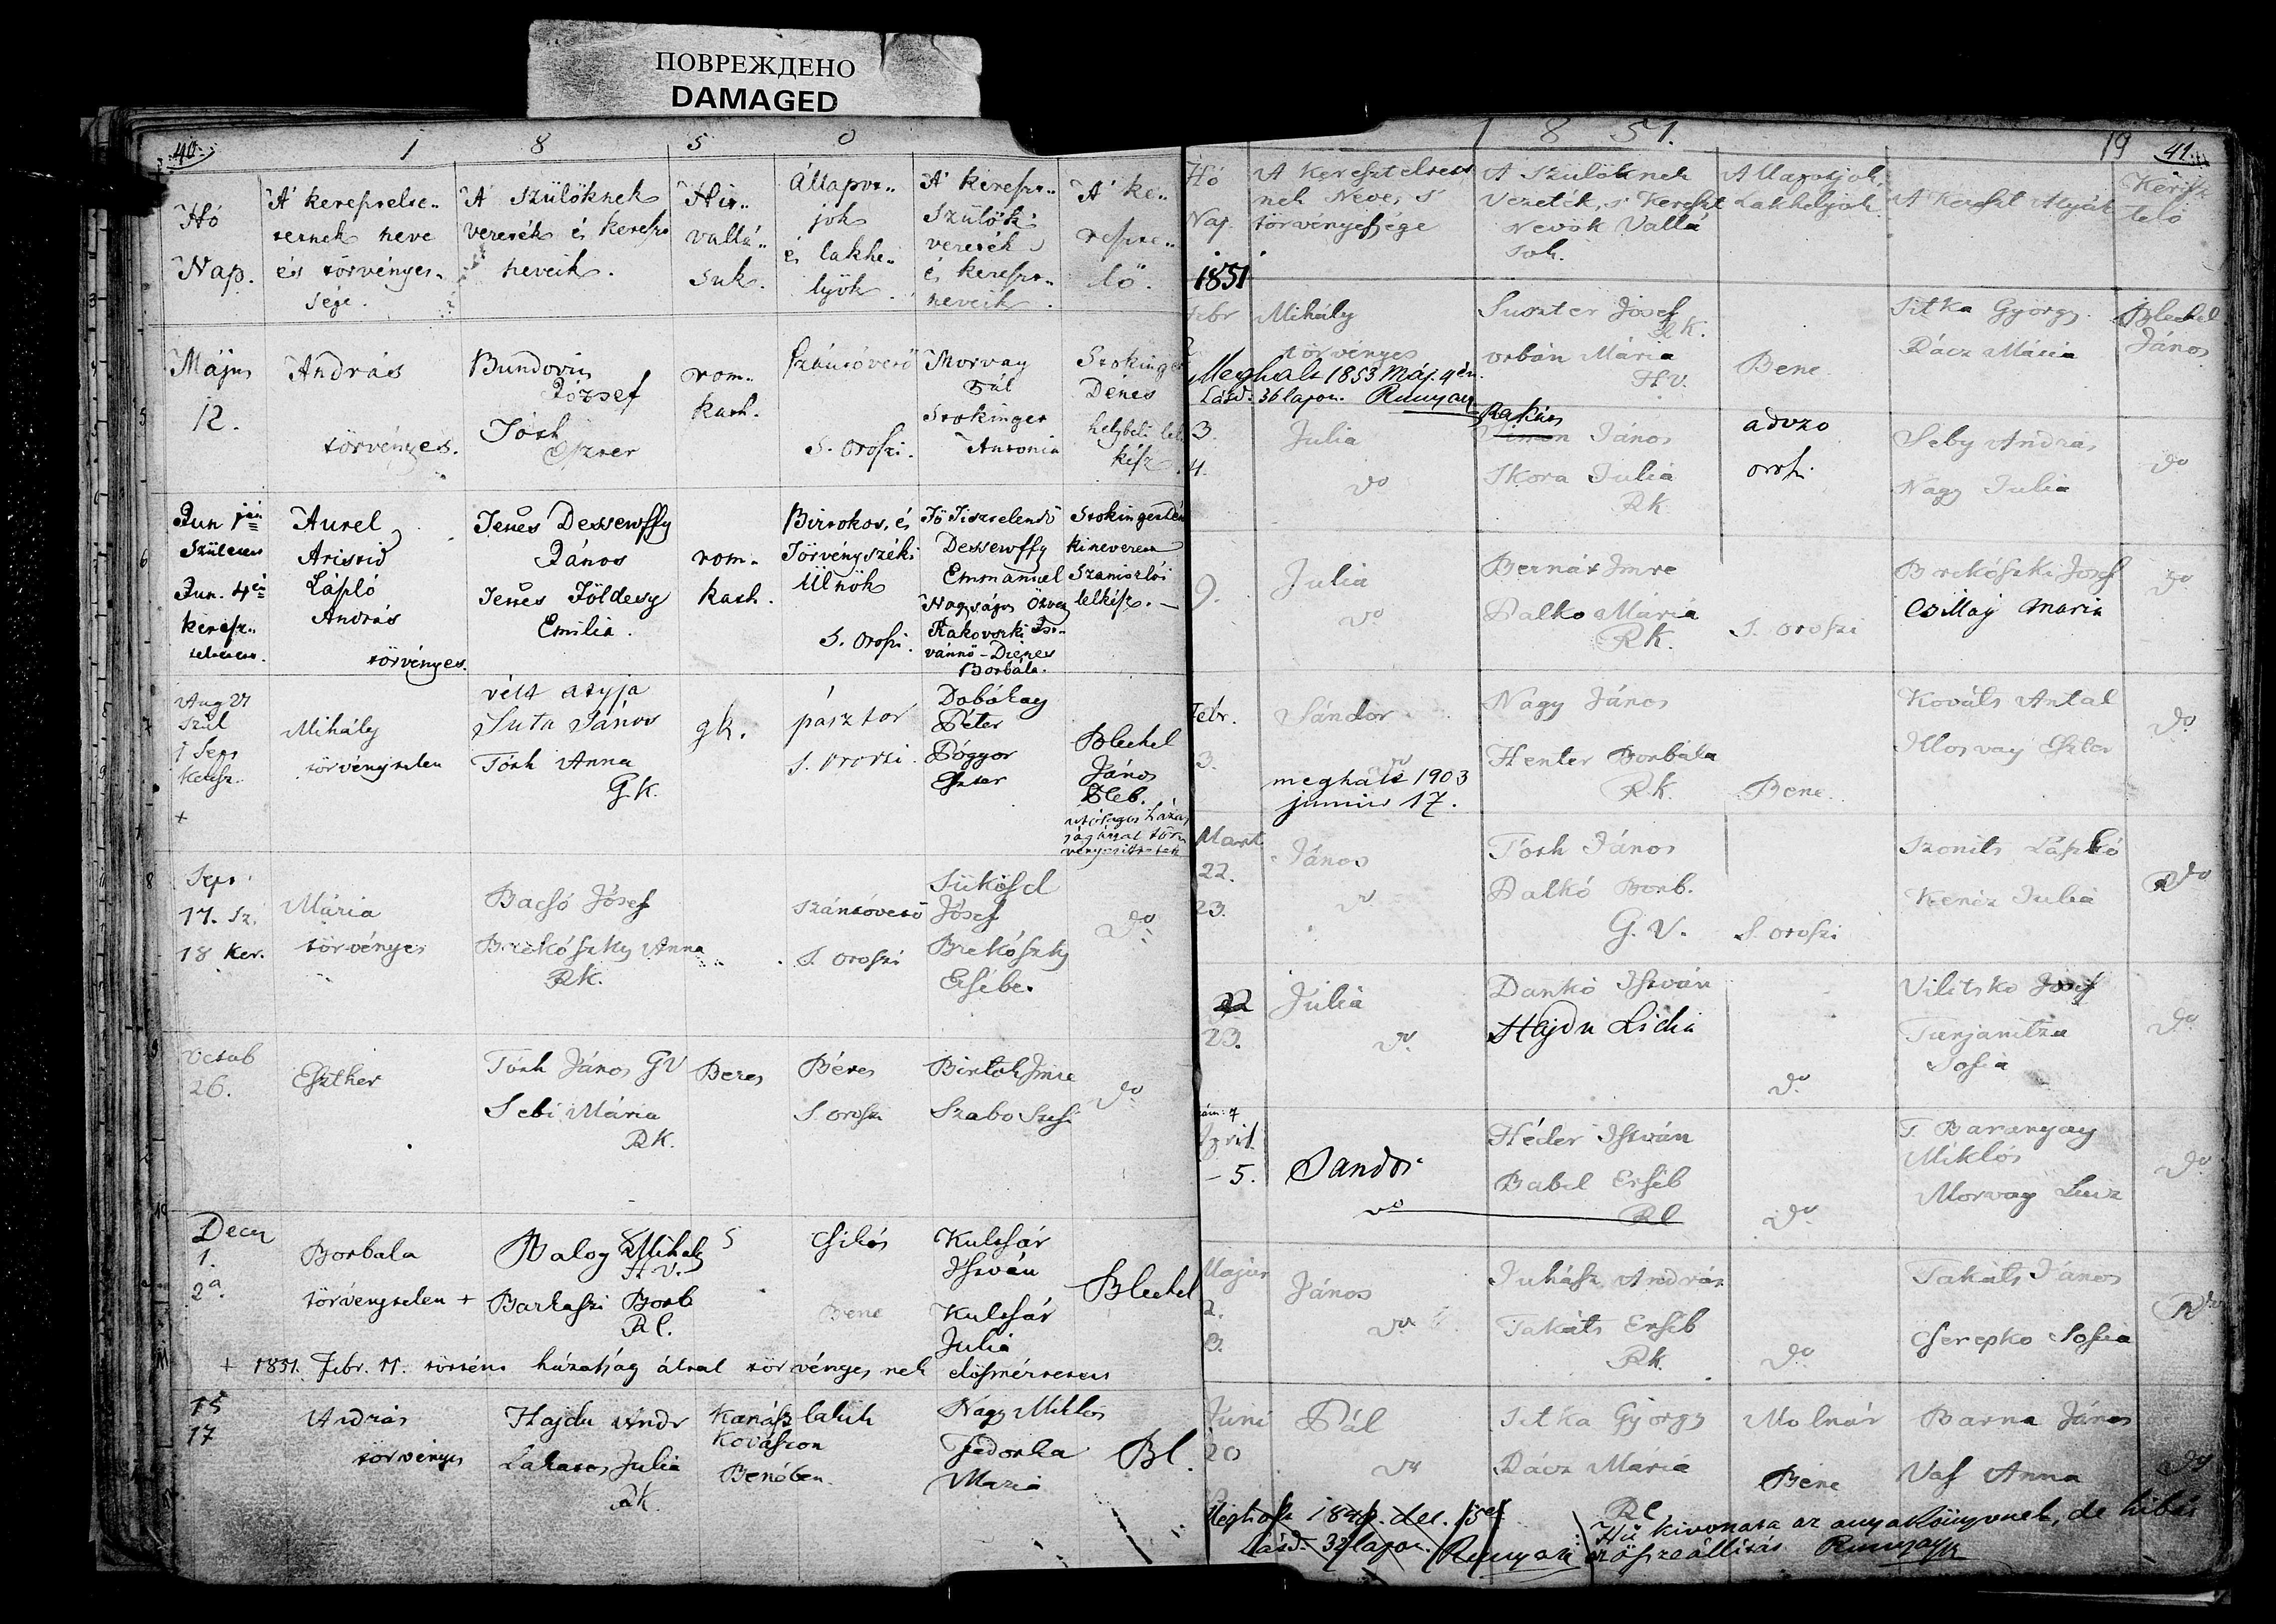 ПОВРЕЖДЕНО
DAMAGED
40.
1 8 5 0
Hó
Nap.
A' kereszelte-
tetnek neve
és törvényes-
sége.
A' szülöknek
vezeték és kereszt
neveik.
Hit-
vallá-
suk.
Állapot-
jok
és lakhe-
lyök.
A' kereszt-
szülök
vezeték
és kereszt-
neveik.
A' ke-
reszte-
lö.
Május
12.
András
törvényes.
Bundovics
József
Tóth
Eszter
rom.
kath.
Szántóvető
S. Oroszi.
Morvay
Pál
Stokinger
Antonia
Stokinger
Dénes
helybeli lel
kész
Jun 1én
Születen
Jun. 4én
keresz-
teltetett.
Aurel
Aristid
László
András
törvényes.
Tettes Dessewffy
János
Tettes Földesy
Emilia.
rom.
kath.
Birtokos, és
Törvényszéki
Ülnök
S. Oroszi.
Fö Tisztelendö
Dessewffy
Emmanuel
Nagyságos Özvegy
Rakovszki Ist-
vánnö - Dienes
Borbála.
Stokinger Dén
kinevezett
Szaniszlói
lelkész. -
Aug 27
Szül
1 Sept
Keresz.
+
Mihály
törvénytelen
vélt atyja
Suta János
Tóth Anna
G.k.
gk.
pásztor
S. Oroszi.
Dobókay
Péter
Pógyor
Eszter
Blechel
János
Pleb.
utólagos házas
ság által törv
vényesittetett
Sept
17. Sz.
18 Ker.
Mária
törvényes
Bacsó Jósef
Brekószky Anna
RK.
szántóvető
S. Oroszi
Sükösd
Jósef
Brekószky
Ersébe.
do
Octob
26.
Eszther
Tóth János GV
Sebi Mária
RK.
Beres
Béres
S. Oroszi
Birtok Imre
Szabo Susi
do
Decem
1.
2a.
Borbala
törvénytelen +
Balog Mihaly
H.V.
Barkaszi Borb
RC.
Csikós
Bene
Kulcsár
István
Kulcsár
Julia
Blechel
+ 1851. Febr. 11. történt házasság által törvényesnek elösmértetett
15
17
András
törvényes
Hajdu Andr
Lakatos Julia
RK.
Kanász lakik
Kovászon
Benében.
Nagy Miklos
Fedorka
Maria
Bl.
1 8 51.
19 41.
Hó
Nap.
A Kereszteltet
nek Neve, s'
törvényessége
A Szülöknek
Vezeték, s' Kereszt
Nevök Vallá
sok.
Allapotjok,
Lakhelyök.
A Kereszt Atyák
Keresz
telö
1851
Febr
2
Mihály
törvényes
Suszter Jósef
RK.
Orbán Mária
H.V.
Bene
Sitka György
Rácz Mária
Blechel
János
Meghalt 1853 Máj. 4én.
Lásd. 36 lapon. Runyay
3.
4.
Julia
do
Rakás
János
Skora Julia
RK
adozo
orosz.
Seby András
Nagy Julia
do
9.
Julia
do
Bernát Imre
Palko Mária
RK.
S. Oroszi
Brekószki Josef
Csillaj Maria
do
Febr.
3.
Sándor
do
meghalt 1903
junius 17.
Nagy János
Henter Borbála
RK.
Bene
Kováts Antal
Ilosvay Eszter
do
Mart
22.
23.
János
do
Tóth János
Palkó Borb.
G.V.
S. Oroszi
Szonits László
Keniz Julia
do
22
23.
Julia
do
Dankó István
Hajdu Lidia
do
Vilitsko Josef
Turjanitza
Sofia
do
April
- 5.
Sandor
do
Héder István
Babel Erséb
RC
do
T. Baranyay
Miklós
Morvay Luiz
do
Május
2.
3.
János
do
Juhász András
Takáts Erséb
RK.
do
Takáts János
Cserepko Sofia
do
Juni
20
Pál
do
Sitka György
Rácz Mária
RC
Molnár
Bene
Barna János
Vas Anna
do
Meghalt dec. 15én
Lásd. 32 lapon. Runyay
Hü kivonata az anyakönyvnek, de hibás
az öszszeállitás Runyay